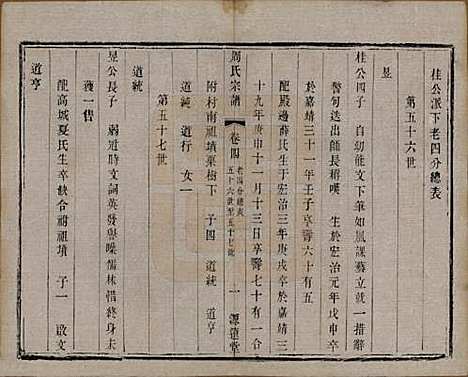 桂公派下老四分總表
第五十六世
昱
桂公四子 自幼能文下筆如風課藝立就一措辭
警句迭出師長稱嘆 生于宏治元年戊申卒
於嘉靖三十一年壬子享壽六十有五
配殿邊薛氏生于宏治三年庚戌卒於嘉靖三
十九年庚申十一月十三日卒壽七十有一合
周氏宗譜 卷四 老四分總表 五十六世至五十七世 一 濂遠堂
附村南祖墳棗樹下 子四 道統 道亨
道純 道行 女一
第五十七世
道統
昱公長子 弱冠時文詞英發譽噪儒林惜終身未
獲一售
龍高城夏氏生卒缺合祔祖墳 子一 啟文
道亨